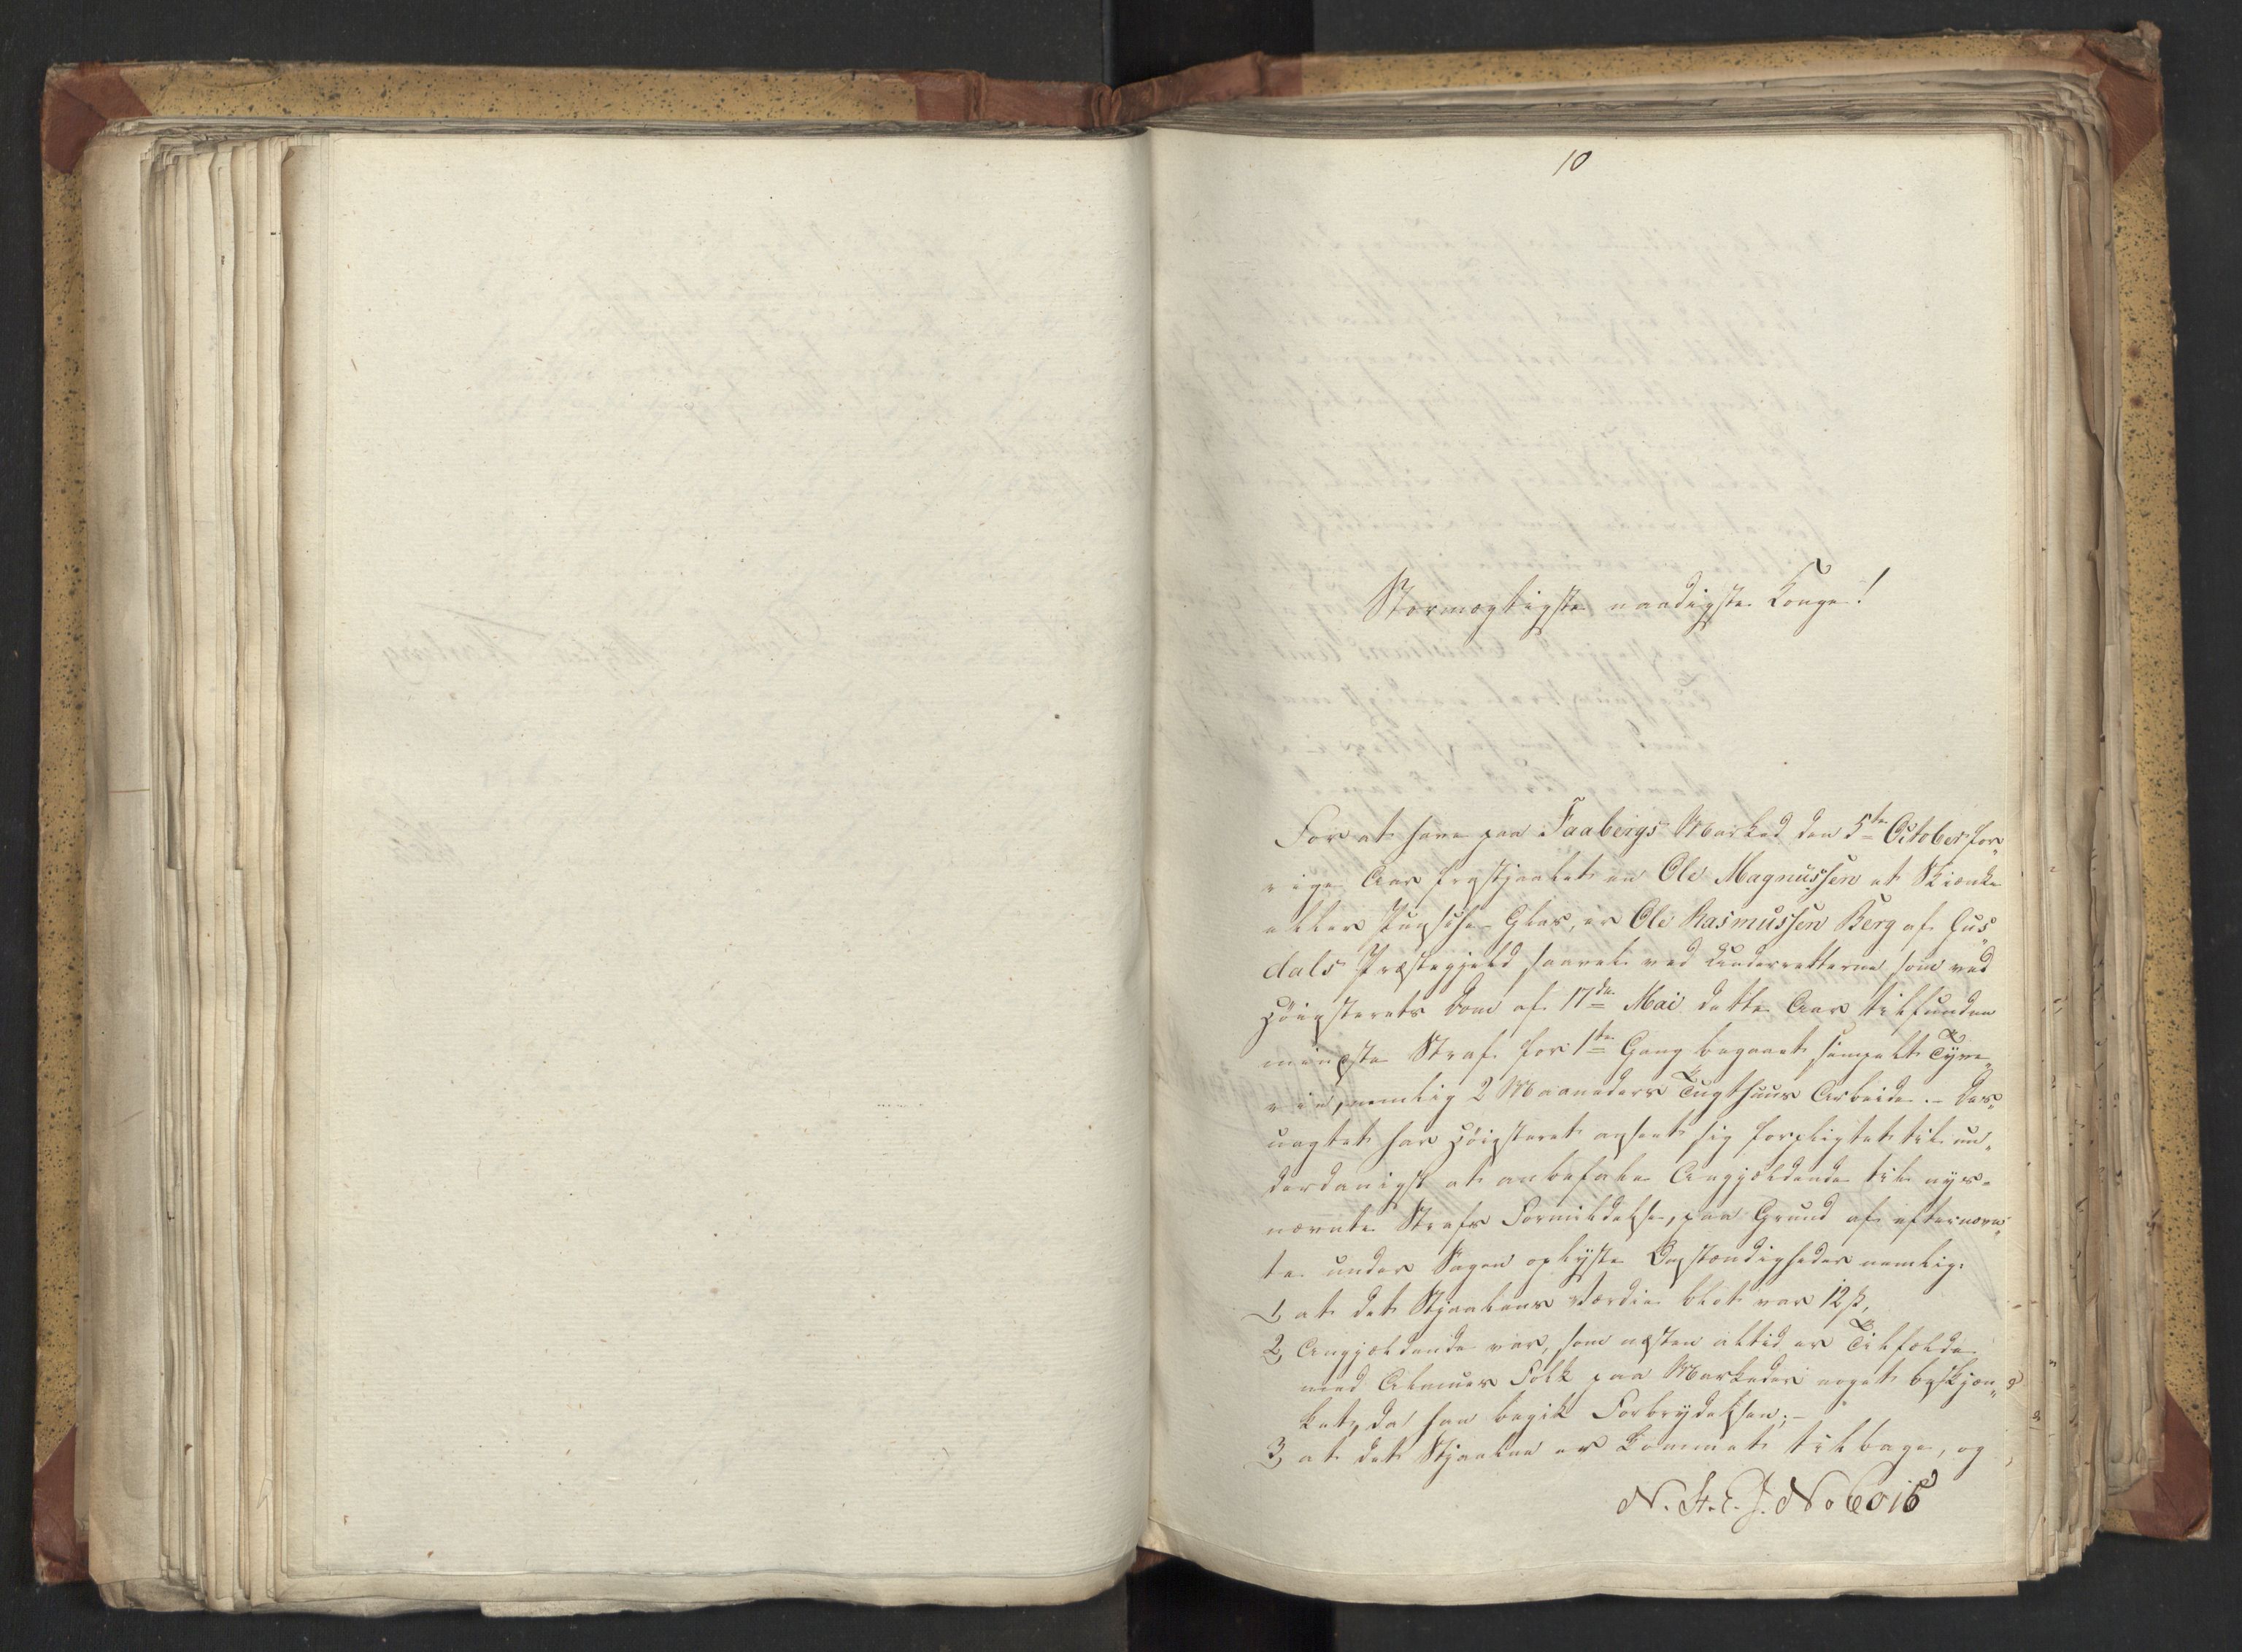 10
Stormægtigste naadigste Konge!
For at have paa Faabergs Marked den 5te October for„
rige Aar frastjaalet en Ole Magnüssen et Skiænke
eller Punsche-Glas, er Ole Rasmussen Berg af Gus„
dals Præstegjeld saavel ved Underretterne som ved
Høiesterets Dom af 17de Mai dette Aar tilfunden
mindste Straf for 1ste Gang begaaet simpelt Tyve„
rie, nemlig 2 Maaneders Tugthuus Arbeide. – Des„
uagtet har Høiesteret anseet sig forpligtet til un„
derdanigst at anbefale Angjældende til nys-
nævnte Strafs Formildelse, paa Grund af efternævn„
te under Sagen oplyste Omstændigheder nemlig:
1, at det Stjaalnes Værdie blot var 12 ß,
2, Angjældende var, som næsten altid er Tilfælde
med Almues Folk paa Markeder noget beskjæn„
ket, da han begik Forbrydelsen; –
3, at det Stjaalne er kommet tilbage, og
N. St. E. J. No 6016